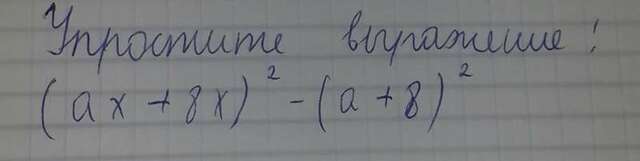 Упростите выражение:
(ax + 8x)² - (a + 8)²